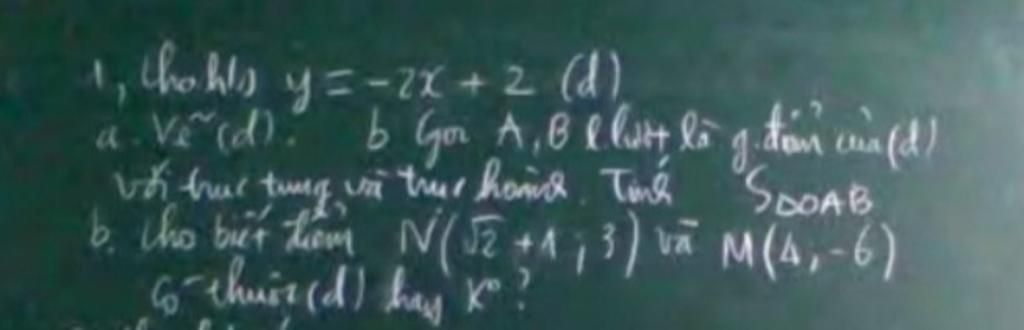 1, Cho h/s y = -2x + 2 (d)
a. Vẽ (d). b Gọi A, B l.lượt là g.điểm của (d)
với trục tung và trục hoành. Tính S△OAB
b. Cho biết điểm N(√2 + 1; 3) và M(4, -6)
có thuộc (d) hay K°?